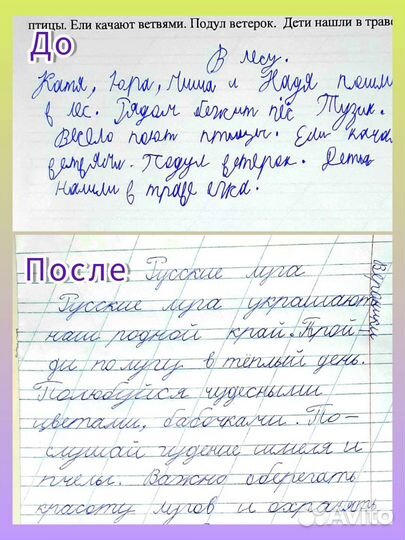 птицы. Ели качают ветвями. Подул ветерок. Дети нашли в траве
До
В лесу.
Катя, Юра, Миша и Надя пошли
в лес. Рядом бежит пёс Тузик.
Весело поют птицы. Ели кача
ветвями. Подул ветерок. Дети
нашли в траве ежа.
После
Русские луга
Русские луга украшают
наш родной край. Прой-
ди по лугу в тёплый день.
Полюбуйся чудесными
цветами, бабочками. По-
слушай гудение шмеля и
пчелы. Важно оберегать
красоту лугов и охранять
Avito